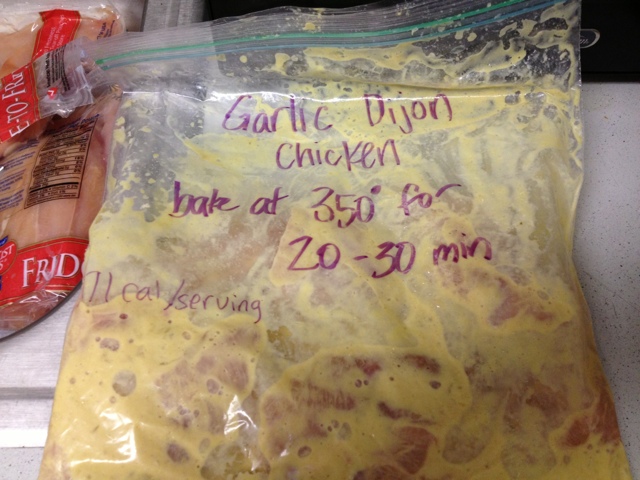 Garlic Dijon
Chicken
bake at 350° for
20-30 min
/serving
E-TO-FR
FRID